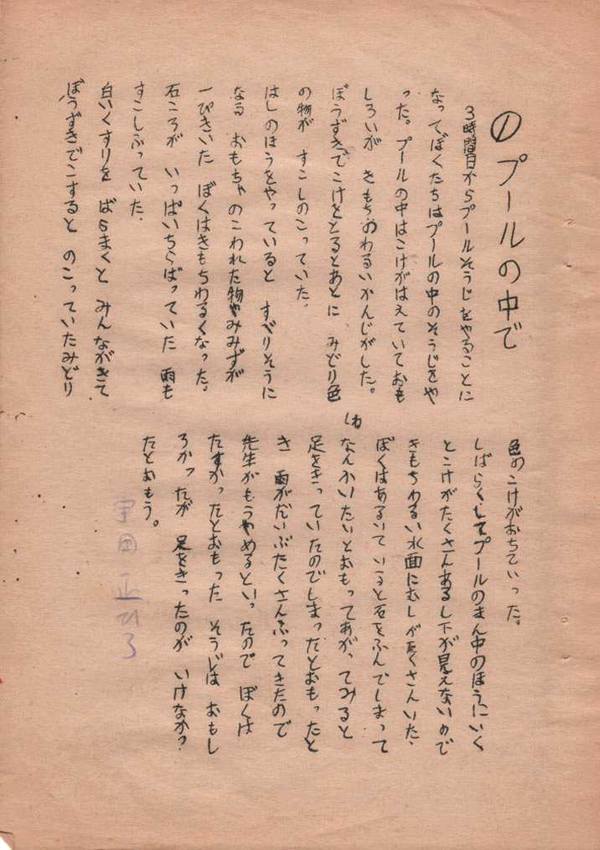 ① プールの中で
3時間目からプールそうじをやることに
なってぼくたちはプールの中のそうじをや
った。プールの中はこけがはえていておも
しろいが きもちのわるいかんじがした。
ぼうずきでこけをとるとあとに みどり色
の物が すこしのこっていた。
はしのほうをやっていると すべりそうに
なる おもちゃのこわれた物やみみずが
一ぴきいた ぼくはきもちわるくなった。
石ころが いっぱいちらばっていた 雨も
すこしふっていた.
白いくすりを ばらまくと みんながきて
ぼうずきでこすると のこっていたみどり
色のこけがおちていった。
しばらくしてプールのまん中のほうにいく
とこけがたくさんあるし下が見えないので
きもちわるい水面にむしがたくさんいた.
ぼくはあるいていると石をふんでしまって
なんかいたいとおもってあがってみると
足をきっていたのでしまったとおもったと
き 雨がだいぶたくさんふってきたので
先生がもうやめるといったので ぼくは
たすかったとおもった そうじは おもし
ろかったが 足をきったのが いけなかっ
たとおもう。
正ひろ